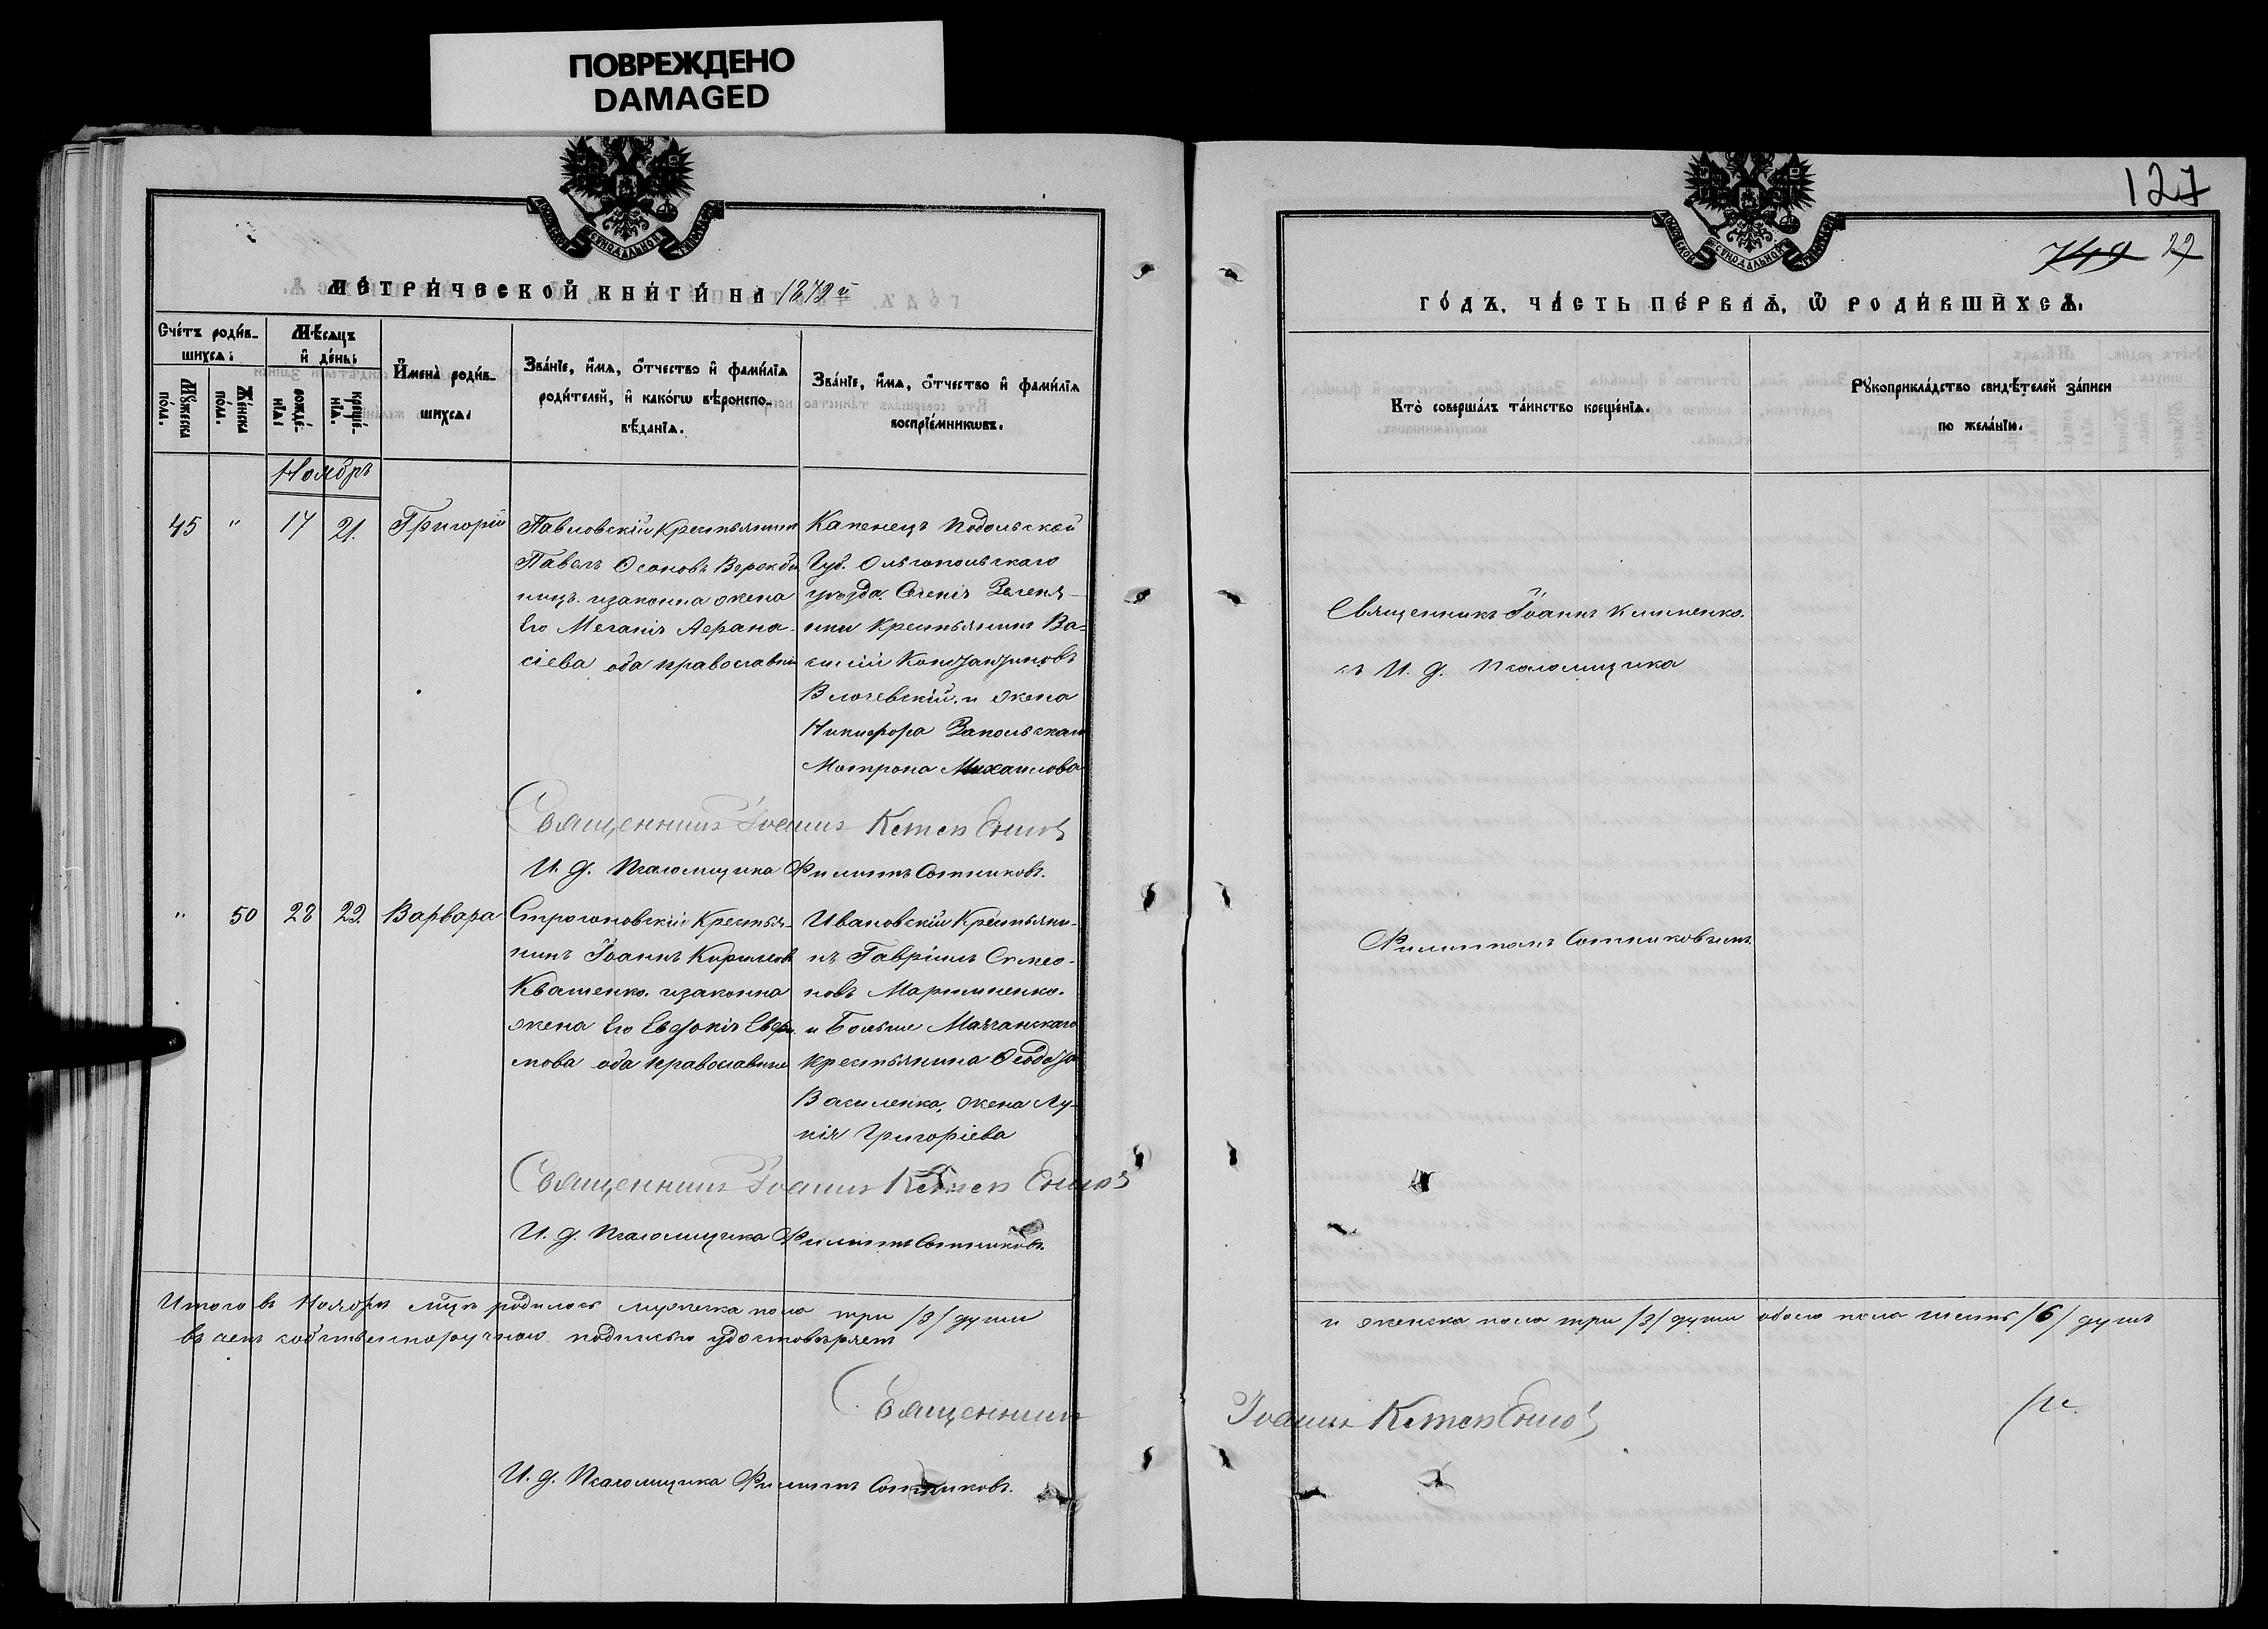 ПОВРЕЖДЕНО
DAMAGED
127
749 27
МОСКОВСКОЙ СѴНОДАЛЬНОЙ
МОСКОВСКОЙ СѴНОДАЛЬНОЙ
МЕТРИЧЕСКОЙ КНИГИ НА 1872й
ГОДЪ, ЧАСТЬ ПЕРВАЯ, Ѿ РОДИВШИХСЯ.
Счетъ родив-
шихся:
Мужеска пола.
Женска пола.
Мѣсяцъ
и день:
рожде-
нія:
креще-
нія.
Имена родив-
шихся:
Званіе, имя, отчество и фамилія
родителей, и какогѡ вѣроиспо-
вѣданія.
Званіе, имя, отчество и фамилія
воспріемникѡвъ.
Кто совершалъ таинство крещенія.
Рукоприкладство свидѣтелей записи
по желанію.
Ноябрь
45 " 17 21. Григорій
Павловскій Крестьянинъ
Павелъ Осиповъ
изаконна жена
Его Меланія Афана-
сіева оба православни
Каменецъ Подольской
Губ. Ольгопольскаго
уѣзда.
Крестьянинъ Ва-
силій Константиновъ
и жена
Никифора Запольскаго
Мотрона Михаилова
Священникъ Іоаннъ Клименко.
съ И. д. Псаломщика
Священникъ Іоаннъ Клименко
И. д. Псаломщика Филиппъ Сотниковъ.
" 50 28 29. Варвара
Строгоновскій Крестья-
нинъ Іоаннъ Кириловъ
Квашенко. изаконна
жена Его Евдокія Евфи-
мова оба православные
Ивановскій Крестьяни-
нъ Гавріилъ Симео-
новъ Мартиненко.
и Больше Маячанскаго
крестьянина Ѳеодота
Василенка, жена Лу-
кія Григоріева
Филиппомъ Сотниковымъ
Священникъ Іоаннъ Клименко
И. д. Псаломщика Филиппъ Сотниковъ.
Итого въ Ноябрѣ мцѣ родилось мужеска пола три /3/ души
и женска пола три /3/ души обоего пола шесть /6/ душъ
въ чемъ собственноручною подписью удостовѣряемъ
Священникъ Іоаннъ Клименко
И. д. Псаломщика Филиппъ Сотниковъ.